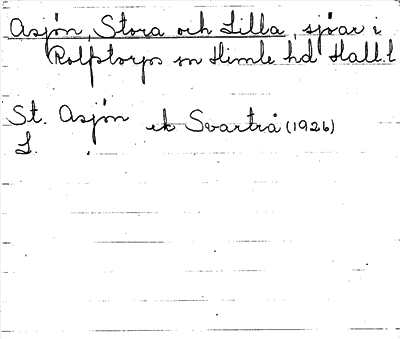 Asjön, Stora och Lilla, sjöar i
Rolfstorps sn Himle hd Hall.l
St. Asjön ek Svartrå (1926)
L.